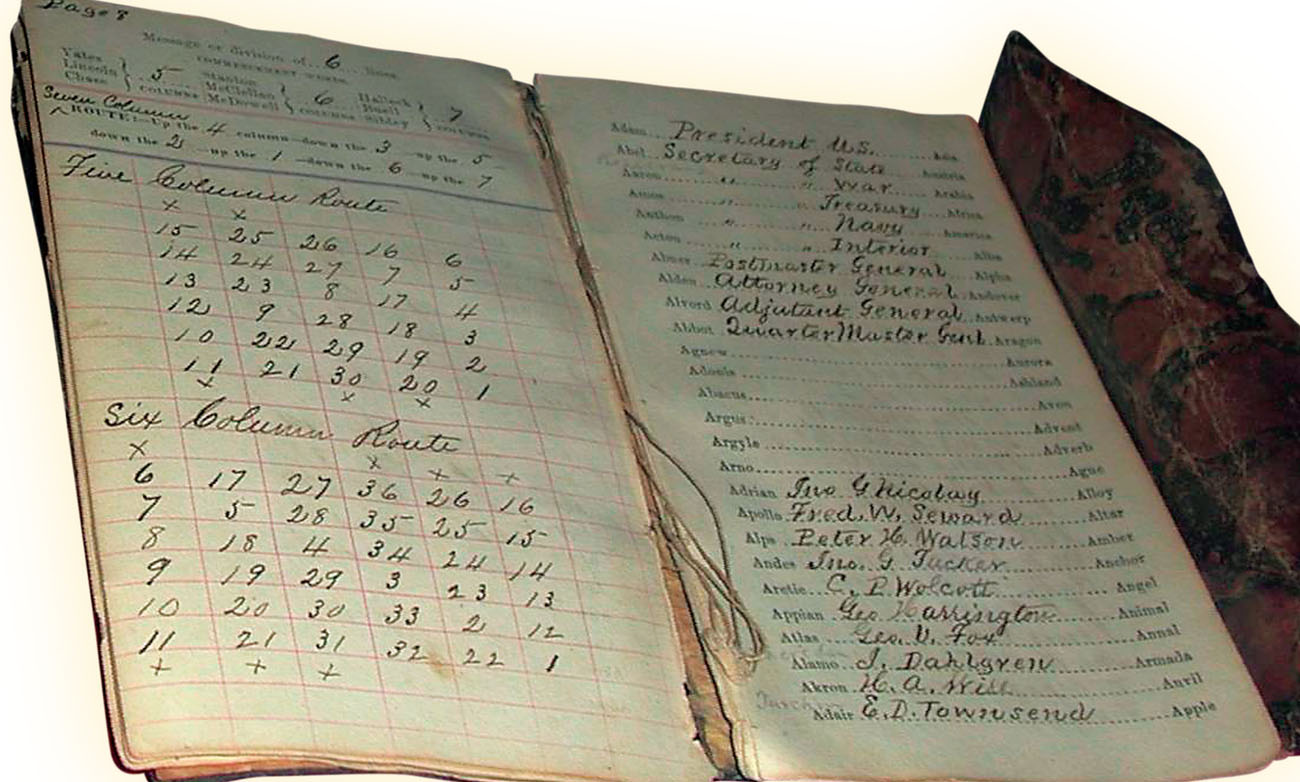 Page 8
Message or division of 6 lines.
COMMENCEMENT WORDS.
Yates Lincoln Chase } 5 COLUMNS Stanton McClellan McDowell } 6 COLUMNS Halleck Buell Sibley } 7 COLUMNS
Seven Column
ROUTE:—Up the 4 column—down the 3 —up the 5
down the 2 —up the 1 —down the 6 —up the 7
Five Column Route
x x
15 25 26 16 6
14 24 27 7 5
13 23 8 17 4
12 9 28 18 3
10 22 29 19 2
11 21 30 20 1
x x x
Six Column Route
x x + +
6 17 27 36 26 16
7 5 28 35 25 15
8 18 4 34 24 14
9 19 29 3 23 13
10 20 30 33 2 12
11 21 31 32 22 1
+ + +
Adam President U.S. Asia
Abel Secretary of State Austria
Aaron " " War Arabia
Amos " " Treasury Africa
Anthon " " Navy America
Acton " " Interior
Abner Postmaster General Alpha
Alden Attorney General Andover
Alvord Adjutant General Antwerp
Abbot QuarterMaster Genl. Aragon
Agnew Aurora
Adonis Ashland
Abacus Avon
Argus Advent
Argyle Adverb
Arno Ague
Adrian Jno. G Nicolay Alloy
Apollo Fred. W. Seward Altar
Alps Peter H. Watson Amber
Andes Jno. G. Tucker Anchor
Arctic C. P. Wolcott Angel
Appian Geo Harrington Animal
Atlas Geo. V. Fox Annal
Alamo J. Dahlgren Armada
Akron H. A. Anvil
Adair E. D. Townsend Apple